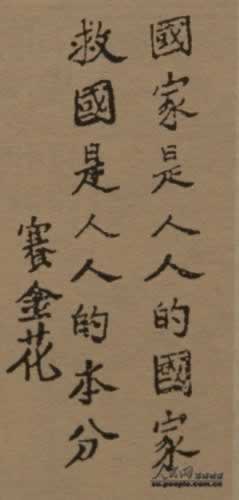 國家是人人的國家
救國是人人的本分
賽金花
人民网
people.com.cn